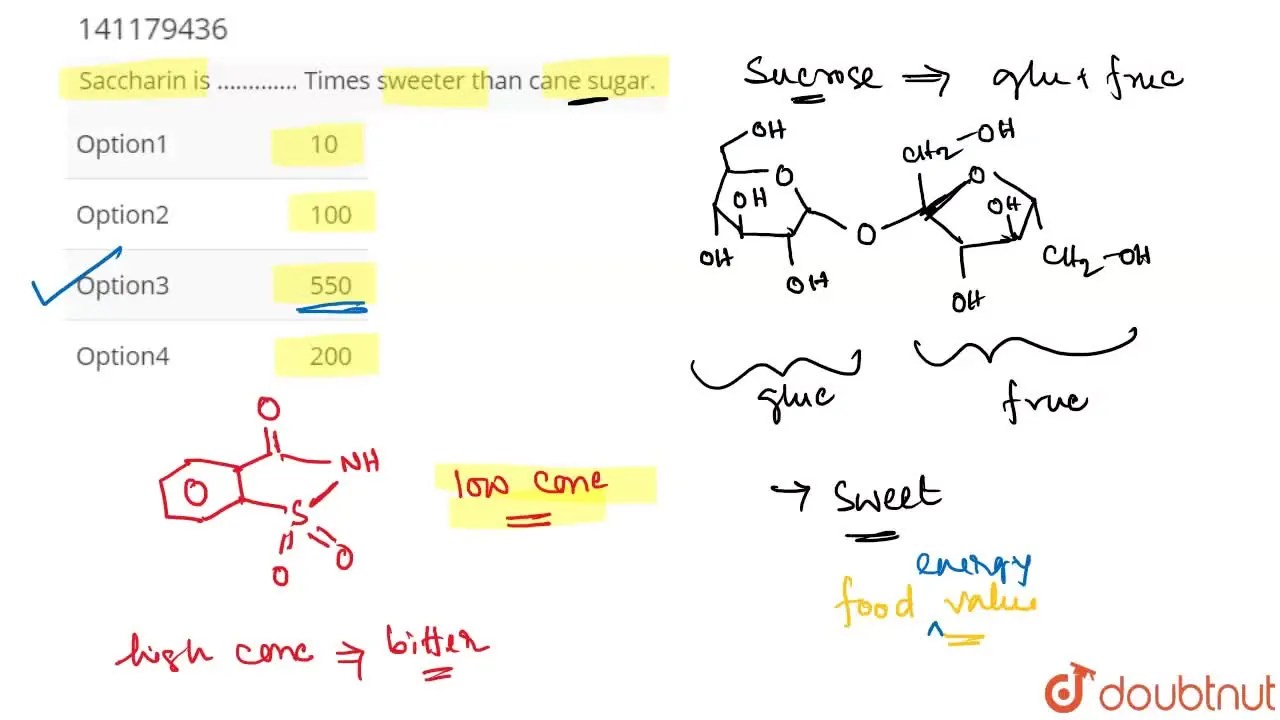 141179436
Saccharin is ............. Times sweeter than cane sugar.
Option1 10
Option2 100
Option3 550
Option4 200
Sucrose ⇒ glu + fruc
OH
O
OH
OH
OH
O
CH2-OH
O
OH
OH
CH2-OH
gluc
fruc
O
NH
S
O
O
O
low conc
high conc ⇒ bitter
→ Sweet
energy
food value
doubtnut